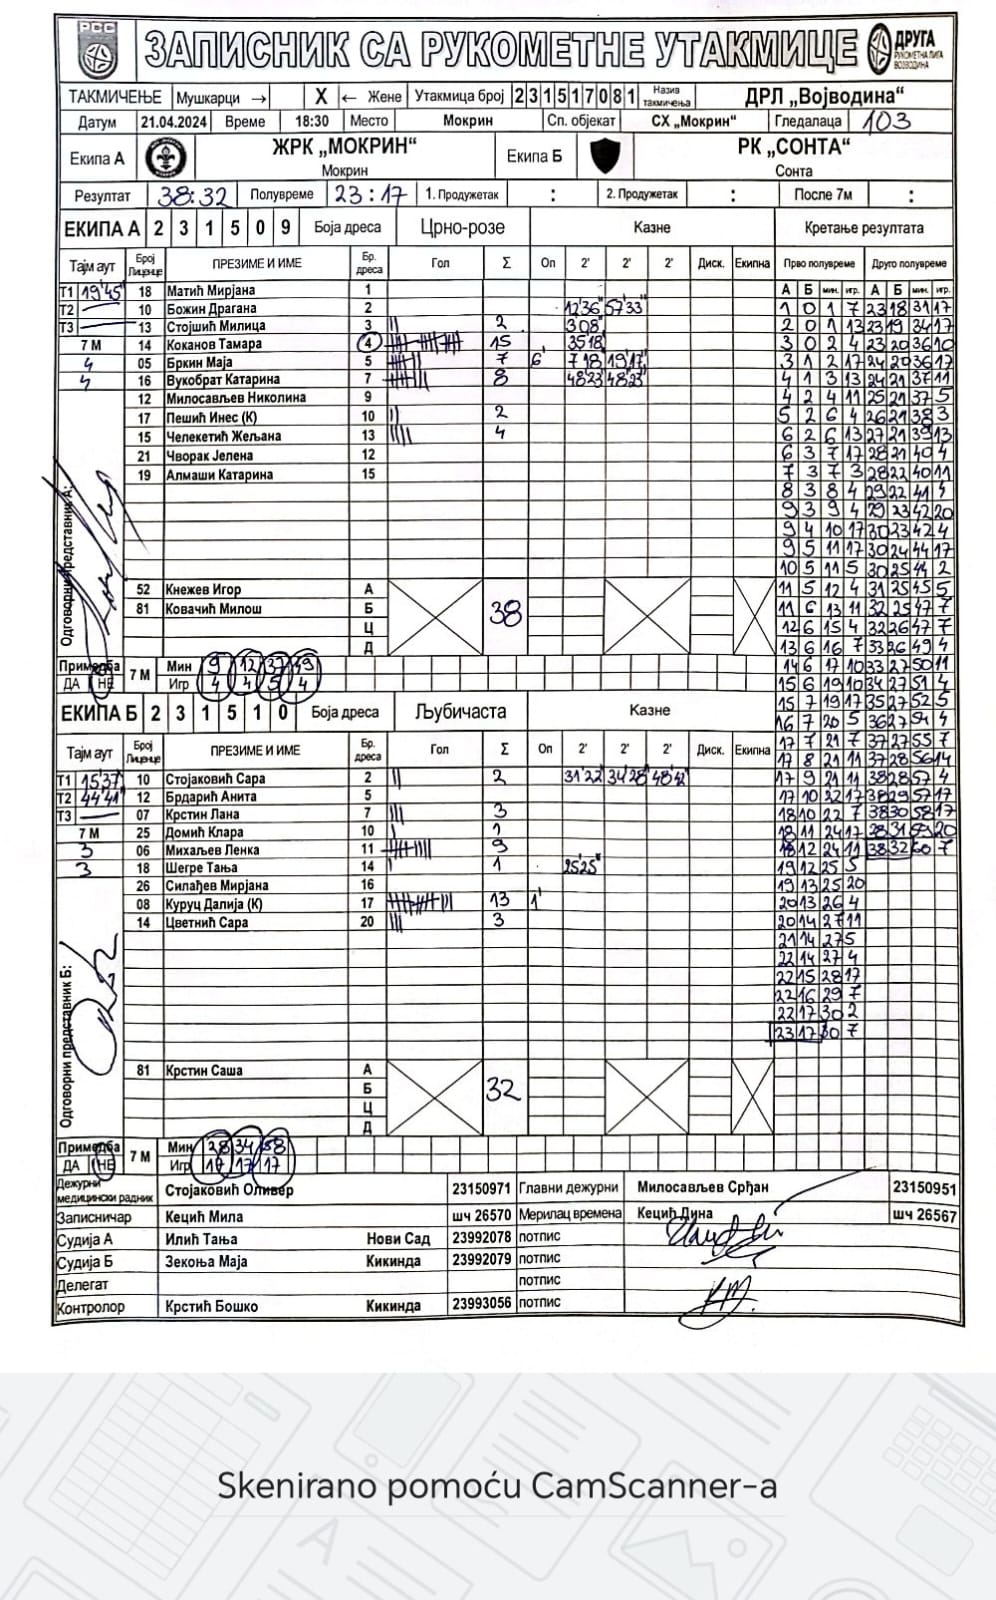 РСС
ЗАПИСНИК СА РУКОМЕТНЕ УТАКМИЦЕ
ДРУГА
РУКОМЕТНА ЛИГА
ВОЈВОДИНА
ТАКМИЧЕЊЕ Мушкарци → X ← Жене Утакмица број 2 3 1 5 1 7 0 8 1 Назив такмичења ДРЛ „Војводина“
Датум 21.04.2024 Време 18:30 Место Мокрин Сп. објекат СХ „Мокрин“ Гледалаца 103
Екипа А ЖРК „МОКРИН“ Екипа Б РК „СОНТА“
Мокрин Сонта
Резултат 38:32 Полувреме 23:17 1. Продужетак : 2. Продужетак : После 7м :
ЕКИПА А 2 3 1 5 0 9 Боја дреса Црно-розе Казне Кретање резултата
Тајм аут Број Лиценце ПРЕЗИМЕ И ИМЕ Бр. дреса Гол Σ Оп 2' 2' 2' Диск. Екипна Прво полувреме Друго полувреме
А Б мин. игр. А Б мин. игр.
Т1 19'45" 18 Матић Мирјана 1
Т2 10 Божин Драгана 2 12'36" 57'33" 1 0 1 7 23 18 31 17
Т3 13 Стојшић Милица 3 2 3'08" 2 0 1 13 23 19 34 17
7 М 14 Коканов Тамара 4 15 35'18" 3 0 2 4 23 20 36 10
4 05 Бркин Маја 5 7 6' 7'18" 19'17" 3 1 2 17 24 20 36 17
4 16 Вукобрат Катарина 7 8 48'23" 48'23" 4 1 3 13 24 21 37 11
12 Милосављев Николина 9 4 2 4 11 25 21 37 5
17 Пешић Инес (К) 10 2 5 2 6 4 26 21 38 3
15 Челекетић Жељана 13 4 6 2 6 13 27 21 39 13
21 Чворак Јелена 12 6 3 7 17 28 21 40 4
19 Алмаши Катарина 15 7 3 7 3 28 22 40 11
8 3 8 4 29 22 41 4
9 3 9 4 29 23 42 20
9 4 10 17 30 23 42 4
9 5 11 17 30 24 44 17
10 5 11 5 30 25 44 2
52 Кнежев Игор А 11 5 12 4 31 25 45 5
81 Ковачић Милош Б 38 11 6 13 11 32 25 47 7
Ц 12 6 15 4 32 26 47 7
Д 13 6 16 7 33 26 49 4
Одговорни представник А:
Примедба 7 М Мин 9 12 37 49 14 6 17 10 33 27 50 11
ДА НЕ Игр 4 4 5 4 15 6 19 10 34 27 51 4
ЕКИПА Б 2 3 1 5 1 0 Боја дреса Љубичаста Казне 15 7 19 17 35 27 52 5
16 7 20 5 36 27 54 4
Тајм аут Број Лиценце ПРЕЗИМЕ И ИМЕ Бр. дреса Гол Σ Оп 2' 2' 2' Диск. Екипна 17 7 21 7 37 27 55 7
17 8 21 11 37 28 56 14
Т1 15'37" 10 Стојаковић Сара 2 2 31'22" 34'28" 48'42" 17 9 21 11 38 28 57 4
Т2 44'41" 12 Брдарић Анита 5 17 10 22 17 38 29 57 17
Т3 07 Крстин Лана 7 3 18 10 22 7 38 30 58 17
7 М 25 Домић Клара 10 1 18 11 24 17 38 31 59 20
3 06 Михаљев Ленка 11 9 18 12 24 11 38 32 60 7
3 18 Шегре Тања 14 1 25'25" 19 12 25 5
26 Силађев Мирјана 16 19 13 25 20
08 Куруц Далија (К) 17 13 1' 20 13 26 4
14 Цветнић Сара 20 3 20 14 27 11
21 14 27 5
22 14 27 4
22 15 28 17
22 16 29 7
22 17 30 2
23 17 30 7
81 Крстин Саша А
Б 32
Ц
Д
Одговорни представник Б:
Примедба 7 М Мин 28 34 58
ДА НЕ Игр 17 17 17
Дежурни медицински радник Стојаковић Оливер 23150971 Главни дежурни Милосављев Срђан 23150951
Записничар Кецић Мила шч 26570 Мерилац времена Кецић Дина шч 26567
Судија А Илић Тања Нови Сад 23992078 потпис
Судија Б Зекоња Маја Кикинда 23992079 потпис
Делегат потпис
Контролор Крстић Бошко Кикинда 23993056 потпис
Skenirano pomoću CamScanner-a